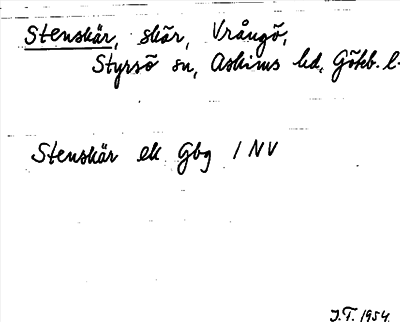 Stenskär, skär, Vrångö,
Styrsö sn, Askims hd, Göteb. l.
Stenskär ek Gbg 1 NV
J.T. 1954.